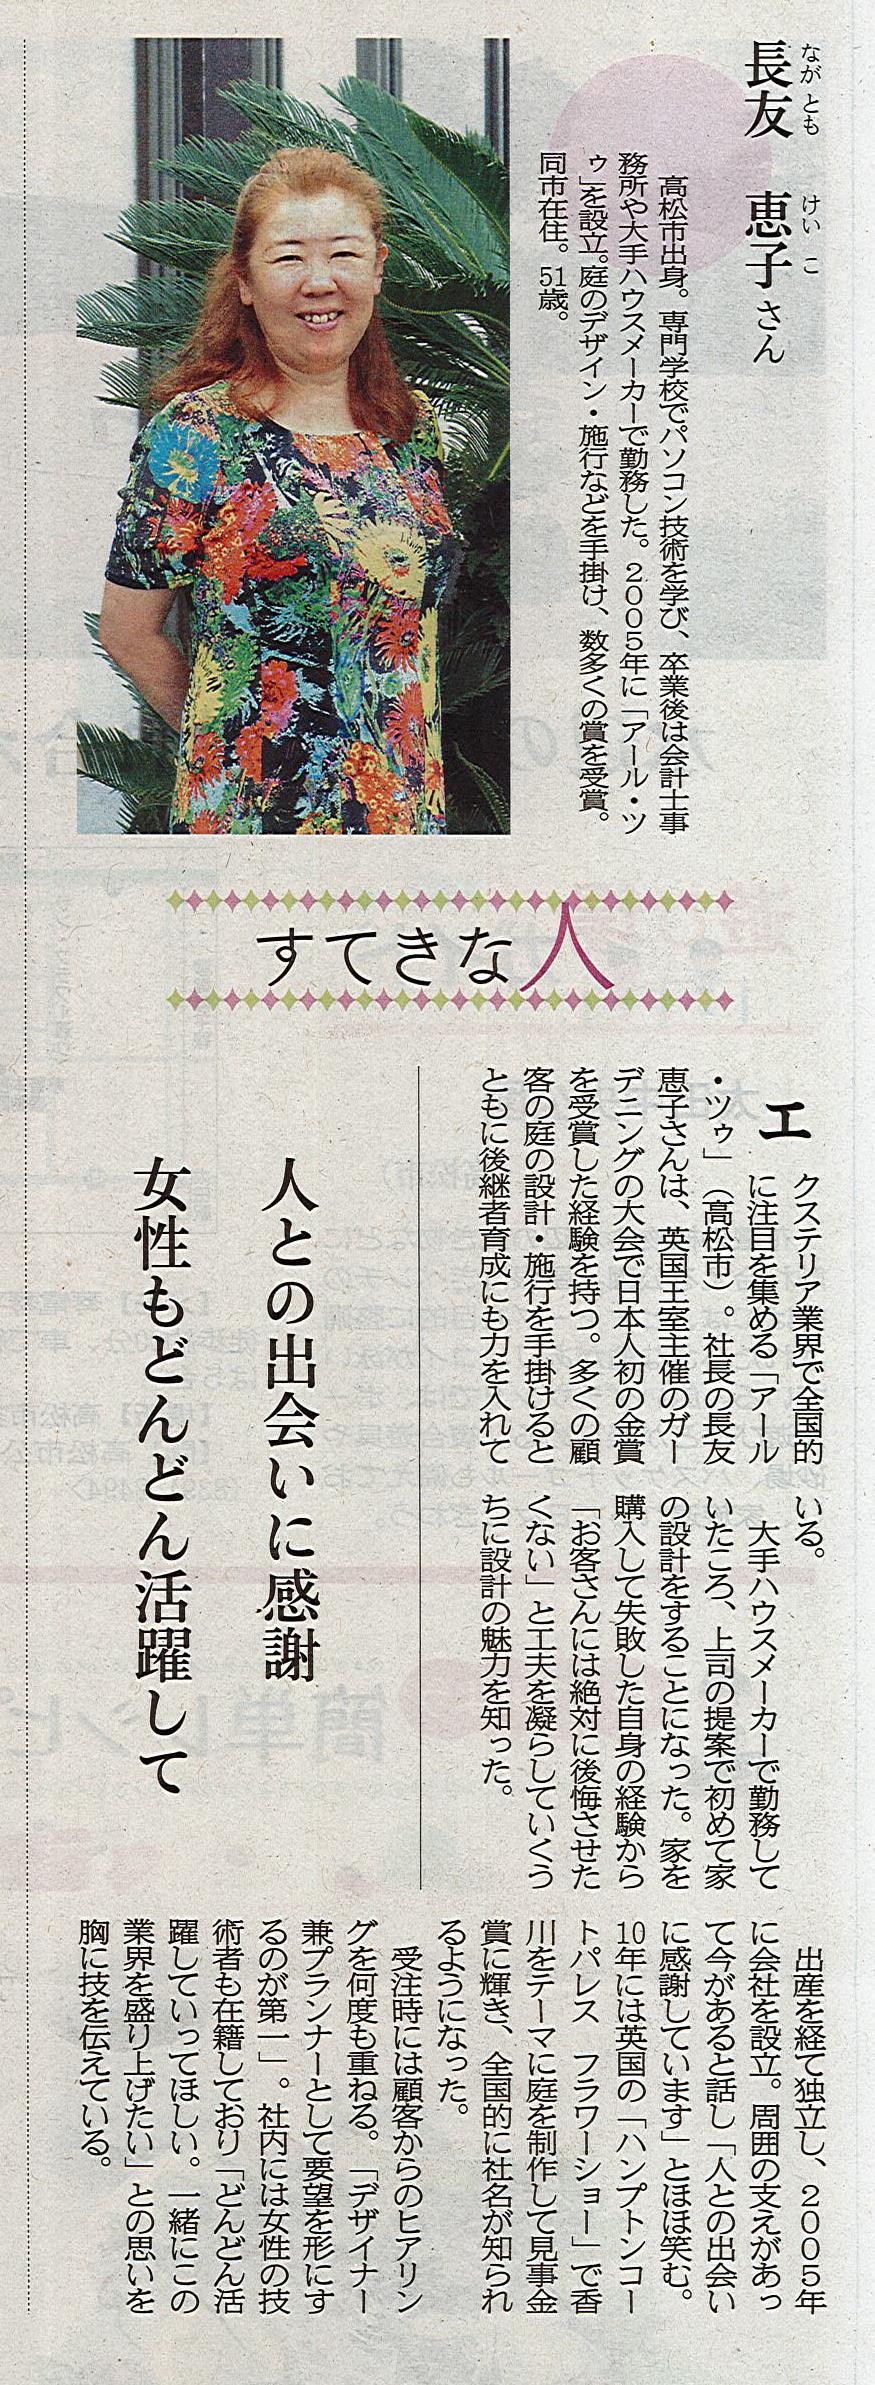 長友　恵子さん
なが とも　けい こ
高松市出身。専門学校でパソコン技術を学び、卒業後は会計士事
務所や大手ハウスメーカーで勤務した。2005年に「アール・ツ
ゥ」を設立。庭のデザイン・施行などを手掛け、数多くの賞を受賞。
同市在住。51歳。
すてきな人
エクステリア業界で全国的
に注目を集める「アール
・ツゥ」（高松市）。社長の長友
恵子さんは、英国王室主催のガー
デニングの大会で日本人初の金賞
を受賞した経験を持つ。多くの顧
客の庭の設計・施行を手掛けると
ともに後継者育成にも力を入れて
いる。
大手ハウスメーカーで勤務して
いたころ、上司の提案で初めて家
の設計をすることになった。家を
購入して失敗した自身の経験から
「お客さんには絶対に後悔させた
くない」と工夫を凝らしていくう
ちに設計の魅力を知った。
人との出会いに感謝
女性もどんどん活躍して
出産を経て独立し、2005年
に会社を設立。周囲の支えがあっ
て今があると話し「人との出会い
に感謝しています」とほほ笑む。
10年には英国の「ハンプトンコー
トパレス　フラワーショー」で香
川をテーマに庭を制作して見事金
賞に輝き、全国的に社名が知られ
るようになった。
受注時には顧客からのヒアリン
グを何度も重ねる。「デザイナー
兼プランナーとして要望を形にす
るのが第一」。社内には女性の技
術者も在籍しており「どんどん活
躍していってほしい。一緒にこの
業界を盛り上げたい」との思いを
胸に技を伝えている。